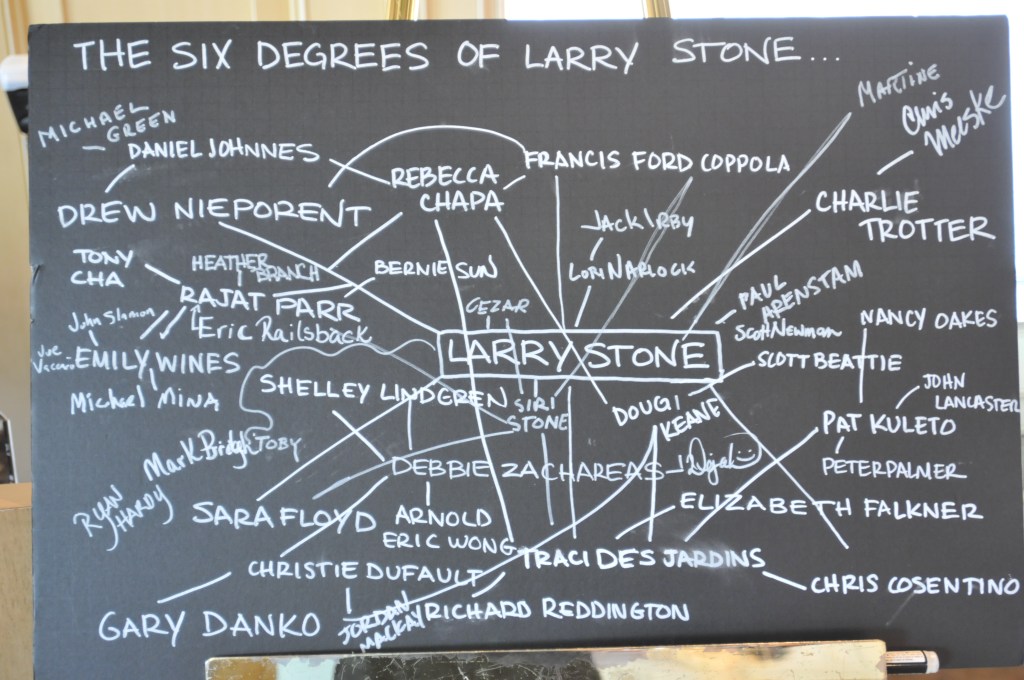 THE SIX DEGREES OF LARRY STONE...
MARTINE
MICHAEL
GREEN
Chris
Meske
DANIEL JOHNNES
FRANCIS FORD COPPOLA
REBECCA
CHAPA
DREW NIEPORENT
CHARLIE
TROTTER
JACK IRBY
TONY
CHA
HEATHER
BRANCH
BERNIE SUN
LORI NARLOCK
RAJAT PARR
CEZAR
PAUL
ARENSTAM
John Slamon
Eric Railsback
Scott Newman
NANCY OAKES
Joe
EMILY WINES
LARRY STONE
SCOTT BEATTIE
Michael MINA
SHELLEY LINDGREN
SIRI
STONE
DOUGI
KEANE
JOHN
LANCASTER
PAT KULETO
Mark Bright
TOBY
DEBBIE ZACHAREAS
PETER PALMER
RYAN
HARDY
SARA FLOYD
ARNOLD
ERIC WONG
ELIZABETH FALKNER
CHRISTIE DUFAULT
TRACI DES JARDINS
CHRIS COSENTINO
GARY DANKO
JORDAN
MACKAY
RICHARD REDDINGTON